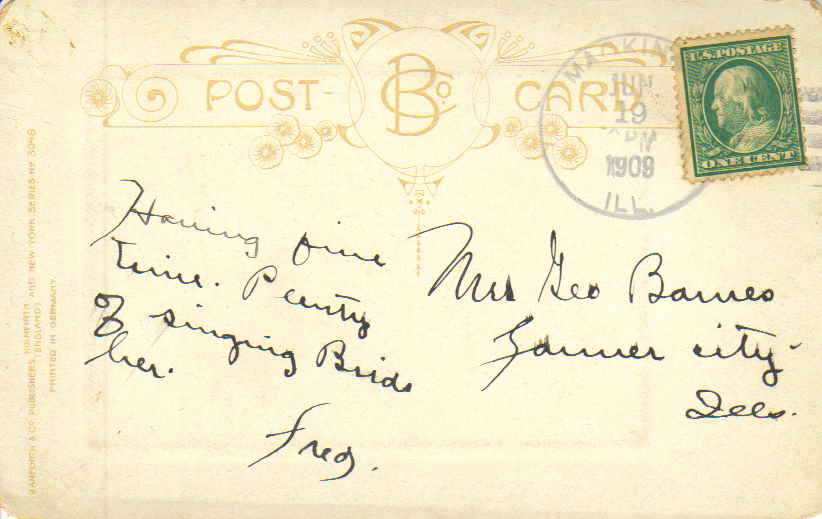 POST CARD
B Co
MACKIN
JUN
19
PM
1909
ILL.
U.S. POSTAGE
ONE CENT
Having fine
time. Plenty
of singing Birds
her.
Fred.
Mrs Geo Barnes
Farmer city
Ills.
BAMFORTH & CO. PUBLISHERS, HOLMFIRTH (ENGLAND) AND NEW YORK SERIES Nº 3048
PRINTED IN GERMANY.